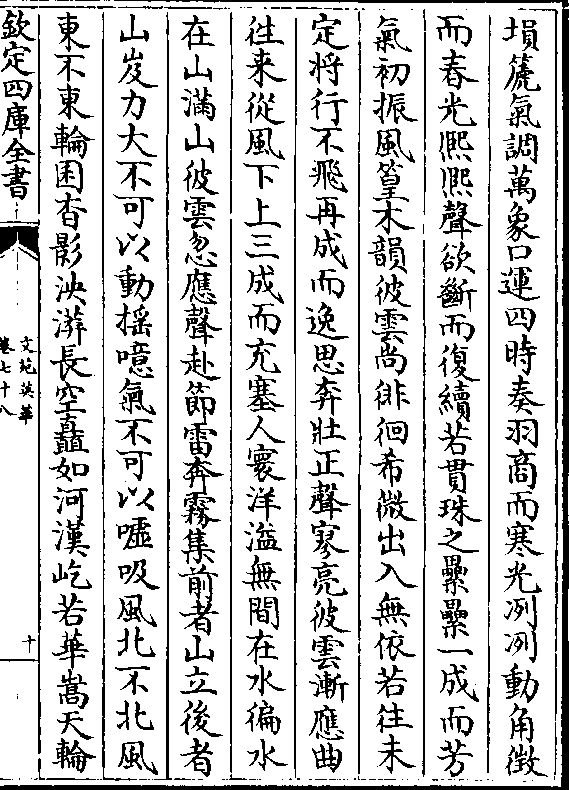 塤篪氣調萬象口運四時奏羽商而寒光冽冽動角徵
而春光熙熙聲欲斷而復續若貫珠之纍纍一成而芳
氣初振風篁木韻彼雲尚徘徊希微出入無依若往未
定將行不飛再成而逸思奔壯正聲寥亮彼雲漸應曲
徃来從風下上三成而充塞人寰洋溢無間在水徧水
在山滿山彼雲忽應聲赴節雷奔霧集前者山立後者
山岌力大不可以動揺噫氣不可以噓吸風北不北風
東不東輪囷杳影泱漭長空矗如河漢屹若華嵩天輪
欽定四庫全書
文苑英華
卷七十八
十